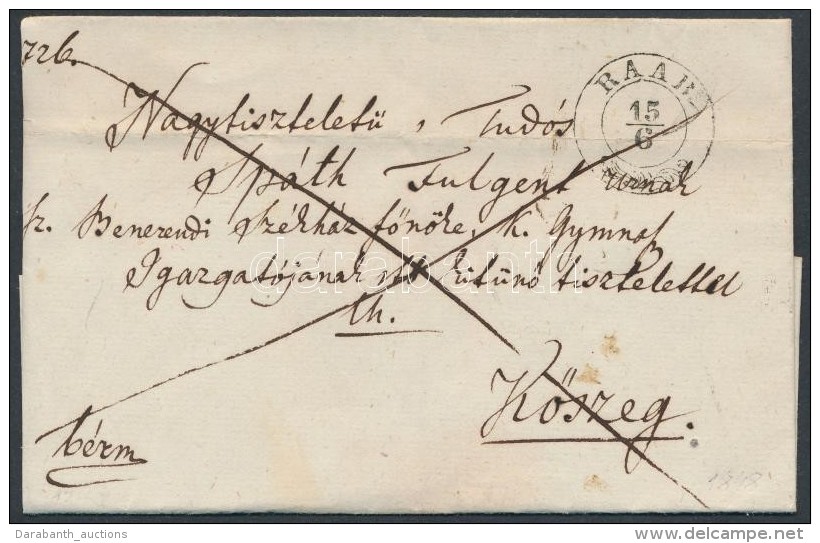 726.
RAAB
15
6
Nagytiszteletü, Tudós
Späth Fulgent Urnak
Sz. Benerendi Székház főnöke, k. Gymnas
Igazgatójának kitünő tisztelettel
th.
darabanth
Kőszeg.
bérm
1848
Darabanth_auctions
www.delcampe.net